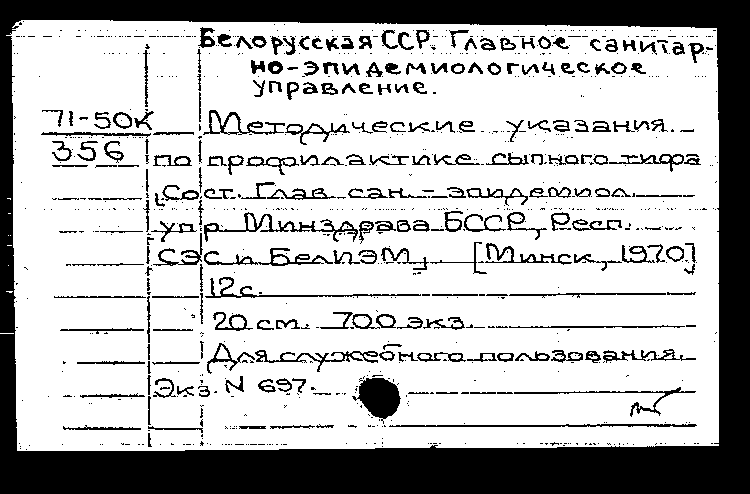 Белорусская ССР. Главное санитар-
но-эпидемиологическое
управление.
71-50К Методические указания
356 по профилактике сыпного тифа
[Сост. Глав. сан. - эпидемиол.
упр. Минздрава БССР, Респ.
СЭС и БелИЭМ]. [Минск, 1970]
12с.
20 см. 700 экз.
Для служебного пользования.
Экз. N 697.